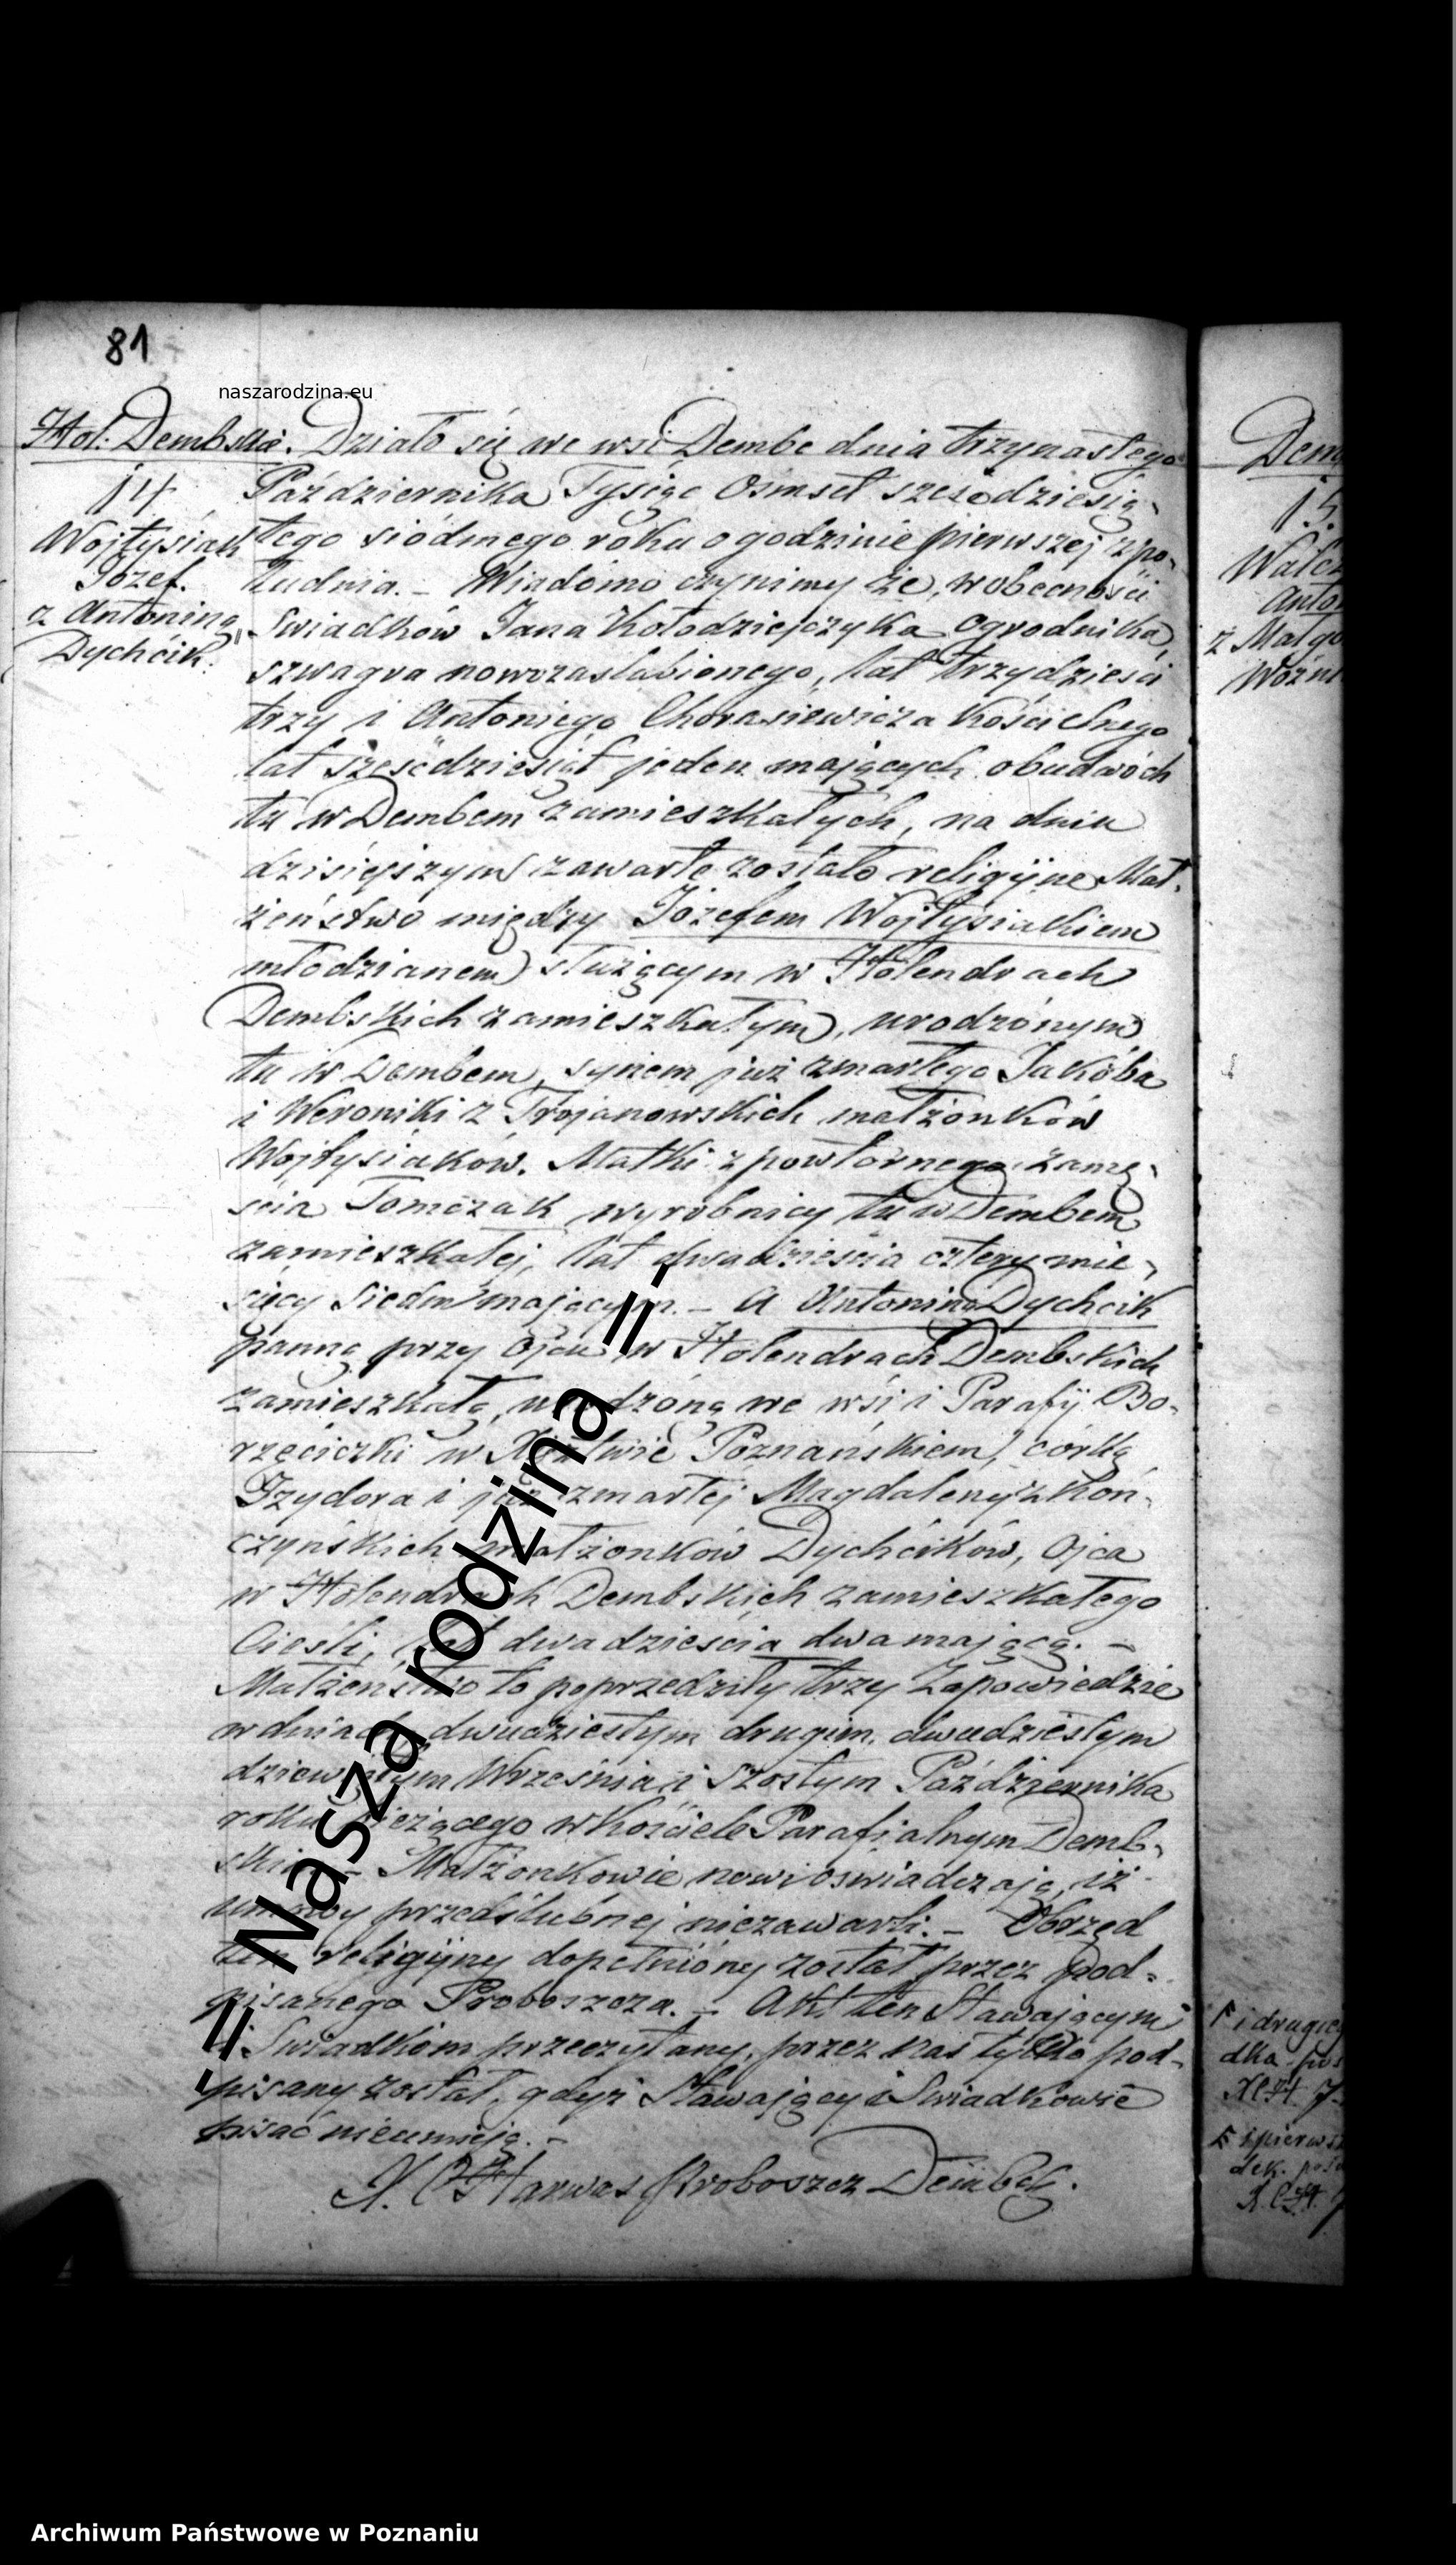 81
naszarodzina.eu
Hol: Dembskie.
14
Wojtysiak
Józef.
z Antoniną
Dychcik.
Działo się we wsi Dembe dnia trzynastego
Października Tysiąc Osmset sześcdziesią-
tego siódmego roku o godzinie pierwszej z po-
łudnia. – Wiadomo czynimy że, w obecności
Swiadków Jana Kołodziejczyka Ogrodnika,
szwagra nowozaslubionego, lat trzydzieści
trzy i Antoniego Chorasiewicza Kościelnego
lat sześćdziesiąt jeden mających obudwóch
tu w Dembem zamieszkałych, na dniu
dzisiejszym zawarte zostało religijne Mał-
żeństwo między Józefem Wojtysiakiem
młodzianem służącym w Holendrach
Dembskich zamieszkałym, urodzónym
tu w Dembem, synem już zmarłego Jakóba
i Weroniki z Trojanowskich małżonków
Wojtysiaków. Matki z powtórnego zamę-
ścia Tomczak wyrobnicy tu w Dembem
zamieszkałej, lat dwadzieścia cztery mie-
sięcy siedm mającym. – A Antoniną Dychcik
panną przy Ojcu w Holendrach Dembskich
zamieszkałą, urodzóną we wsi i Parafij Bo-
rzęciczki w Xięstwie Poznańskiem, córką
Izydora i już zmarłej Magdaleny z Koń-
czyńskich małżonków Dychcików, Ojca
w Holendrach Dembskich zamieszkałego
Cieśli, lat dwadzieścia dwa mającą. –
Małżeństwo to poprzedziły trzy Zapowiedzie
w dniach dwudziestym drugim, dwudziestym
dziewiątym Wrzesnia i szostym Października
roku bieżącego w Kościele Parafialnym Demb-
skim – Małżonkowie nowi oświadczają, iż
umowy przedślubnej niezawarli. – Obrzęd
ten religijny dopełniony został przez Pod-
pisanego Proboszcza. – Akt ten Stawającym
i Swiadkom przeczytany, przez nas tylko pod-
pisany został, gdyż Stawający i Swiadkowie
pisać nieumieją. –
X. Harwas Proboszcz Dembsk.
Dem
15.
Walcz
Anto
z Małgo
Woźni
i drugie
dka
i pierwsz
dek.
-= Nasza rodzina =-
Archiwum Państwowe w Poznaniu